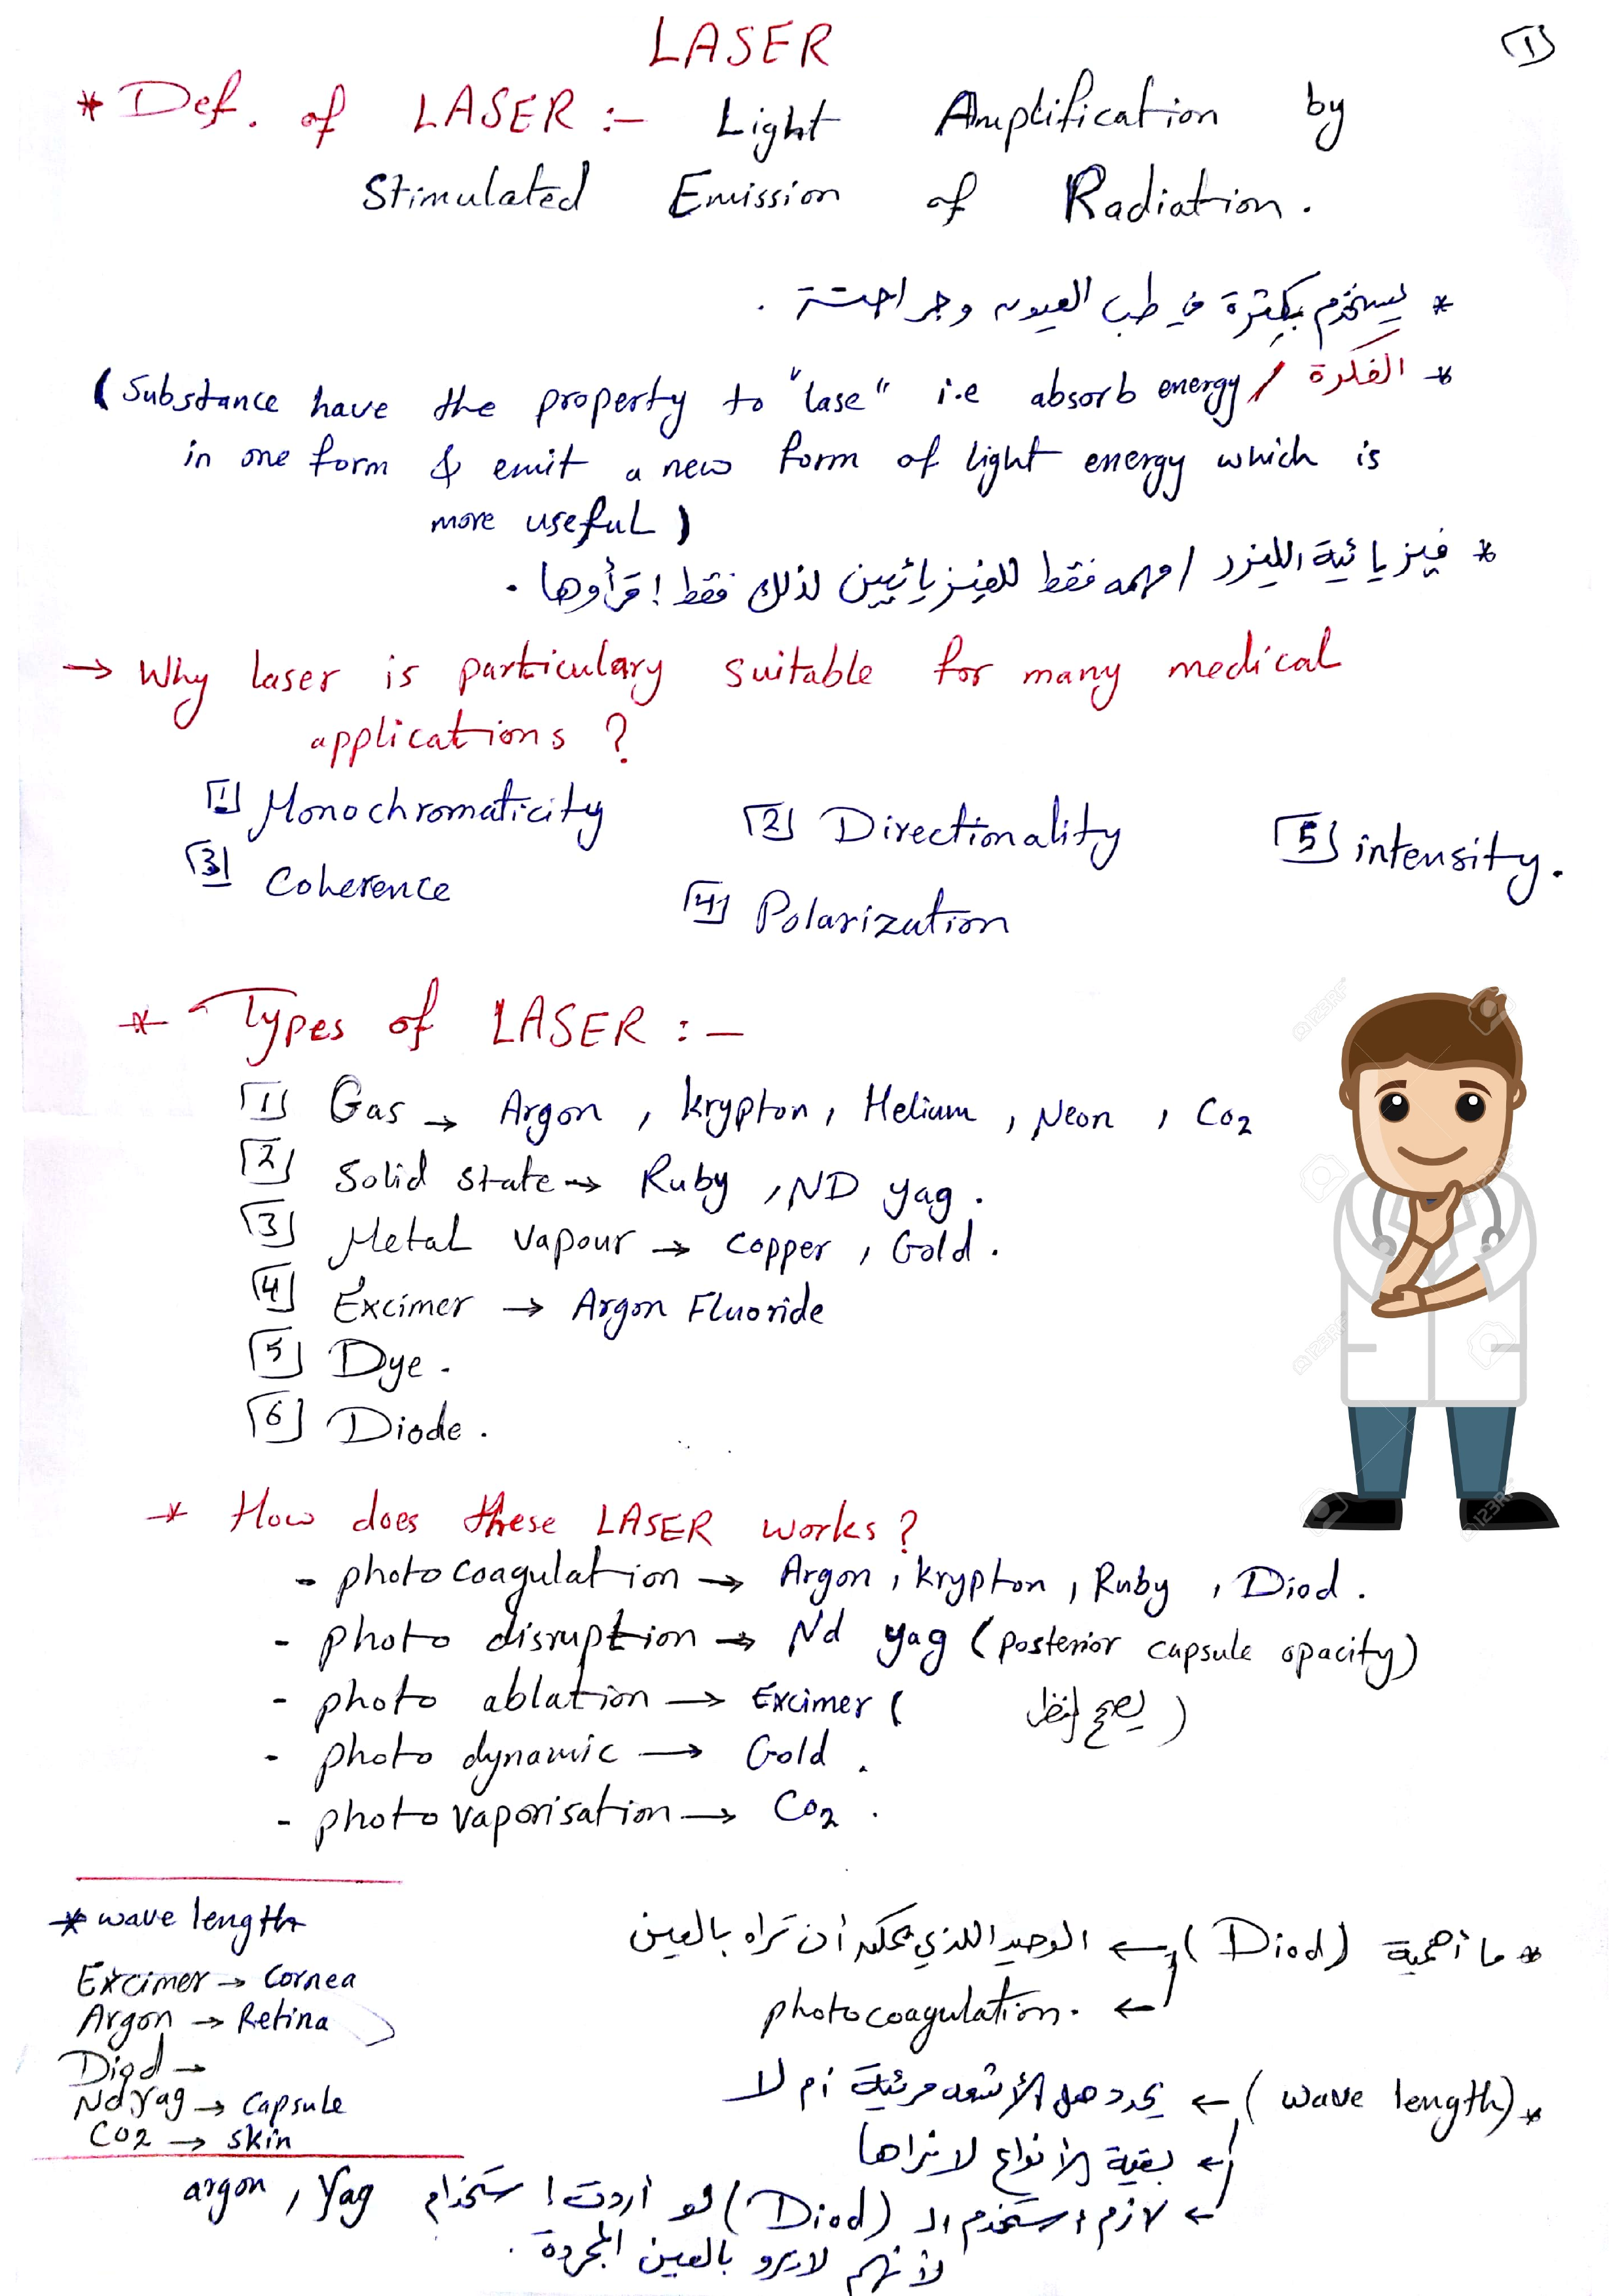 LASER
1
* Def. of LASER :- Light Amplification by
Stimulated Emission of Radiation.
* يستخدم بكثرة في طب العيون وجراحته .
* الفكرة /
(Substance have the property to "lase" i.e absorb energy
in one form & emit a new form of light energy which is
more useful)
* فيزيائية الليزر / مهمه فقط للفيزيائيين لذلك فقط إقرأوها .
→ Why laser is particulary suitable for many medical
applications ?
1 Monochromaticity
2 Directionality
3 Coherence
4 Polarization
5 intensity.
* Types of LASER :-
1 Gas → Argon , krypton , Helium , Neon , Co2
2 Solid state → Ruby , ND yag .
3 Metal vapour → copper , Gold .
4 Excimer → Argon Fluoride
5 Dye .
6 Diode .
* How does these LASER works ?
- photocoagulation → Argon , krypton , Ruby , Diod .
- photo disruption → Nd yag (posterior capsule opacity)
- photo ablation → Excimer ( يصحح النظر )
- photo dynamic → Gold .
- photovaporisation → Co2 .
* wave length
Excimer → Cornea
Argon → Retina
Diod →
Nd yag → Capsule
CO2 → skin
* ما أهمية (Diod) ← الوحيد اللذي يمكن أن تراه بالعين
← photocoagulation.
* (wave length) ← يحدد هل الأشعه مرئية أم لا
← بقية الأنواع لا نراها
← لازم استخدم الـ (Diod) لو أردت إستخدام argon , Yag
لأنهم لا يرو بالعين المجردة .
123RF
123RF
123RF
123RF